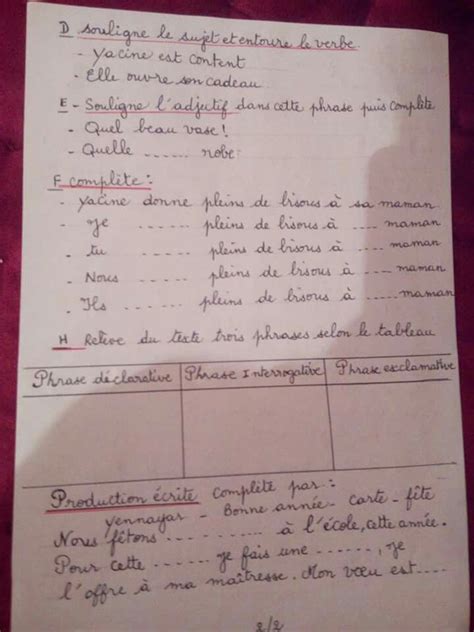 D souligne le sujet et entoure le verbe.
- Yacine est content
- Elle ouvre son cadeau.
E - Souligne l'adjectif dans cette phrase puis complète
- Quel beau vase !
- Quelle ...... robe
F complète :
- Yacine donne pleins de bisous à sa maman.
- Je ...... pleins de bisous à .... maman
- tu ...... pleins de bisous à .... maman
- Nous ...... pleins de bisous à .... maman
- Ils ...... pleins de bisous à .... maman
H Relève du texte trois phrases selon le tableau
Phrase déclarative Phrase Interrogative Phrase exclamative
Production écrite complète par :
yennayar - Bonne année - carte - fête
Nous fêtons .......... à l'école, cette année.
Pour cette ...... je fais une ......, je
l'offre à ma maîtresse. Mon vœu est ....
2/2